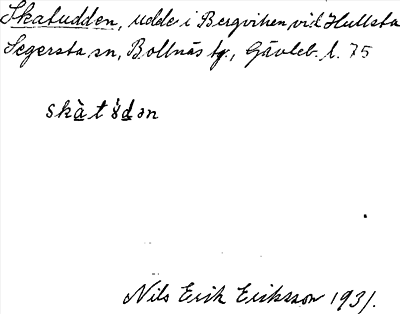 Skatudden, udde i Bergviken vid Hullsta
Segersta sn, Bollnäs tg., Gävleb. l. 75
skàtúdən
Nils Erik Eriksson 1931.